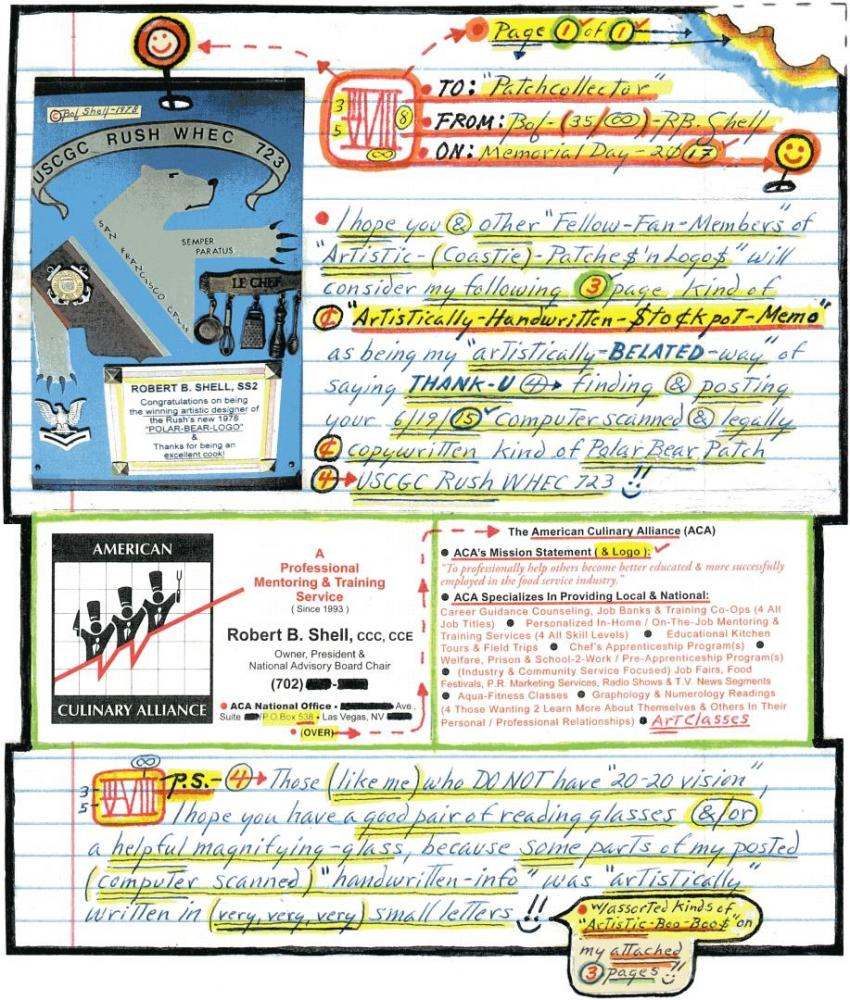 Page 1 of 1
TO: "Patchcollector"
FROM: Bob-(35/∞)-RB. Shell
ON: Memorial Day-2017
3
5
8
∞
©Bob Shell-1978
USCGC RUSH WHEC 723
SAN FRANCISCO CALIF
SEMPER
PARATUS
LE CHEF
ROBERT B. SHELL, SS2
Congratulations on being
the winning artistic designer of
the Rush's new 1978
"POLAR-BEAR-LOGO"
&
Thanks for being an
excellent cook!
• I hope you & other "Fellow-Fan-Members" of
"Artistic-(Coastie)-Patche$'n Logo$" will
consider my following 3 page kind of
¢ "Artistically-Handwritten-$to¢kpot-Memo"
as being my "artistically-BELATED-way" of
saying THANK-U 4→ finding & posting
your 6/19/15 computer scanned & legally
¢ copywritten kind of Polar Bear Patch
4→ USCGC Rush WHEC 723 !!
AMERICAN
CULINARY ALLIANCE
A
Professional
Mentoring & Training
Service
( Since 1993 )
Robert B. Shell, CCC, CCE
Owner, President &
National Advisory Board Chair
(702) -
• ACA National Office • Ave.
Suite / P.O. Box 538 • Las Vegas, NV
• (OVER)
The American Culinary Alliance (ACA)
● ACA's Mission Statement ( & Logo ):
"To professionally help others become better educated & more successfully
employed in the food service industry."
● ACA Specializes In Providing Local & National:
Career Guidance Counseling, Job Banks & Training Co-Ops (4 All
Job Titles) ● Personalized In-Home / On-The-Job Mentoring &
Training Services (4 All Skill Levels) ● Educational Kitchen
Tours & Field Trips ● Chef's Apprenticeship Program(s) ●
Welfare, Prison & School-2-Work / Pre-Apprenticeship Program(s)
● (Industry & Community Service Focused) Job Fairs, Food
Festivals, P.R. Marketing Services, Radio Shows & T.V. News Segments
● Aqua-Fitness Classes ● Graphology & Numerology Readings
(4 Those Wanting 2 Learn More About Themselves & Others In Their
Personal / Professional Relationships) ● Art Classes
∞
3
5
P.S.-4→ Those (like me) who DO NOT have "20-20 vision",
I hope you have a good pair of reading glasses &/or
a helpful magnifying-glass, because some parts of my posted
(computer scanned) "handwritten-info" was "artistically"
written in (very, very, very) small letters !!
• w/assorted kinds of
"Artistic-Boo-Boo$" on
my attached
3 pages !!